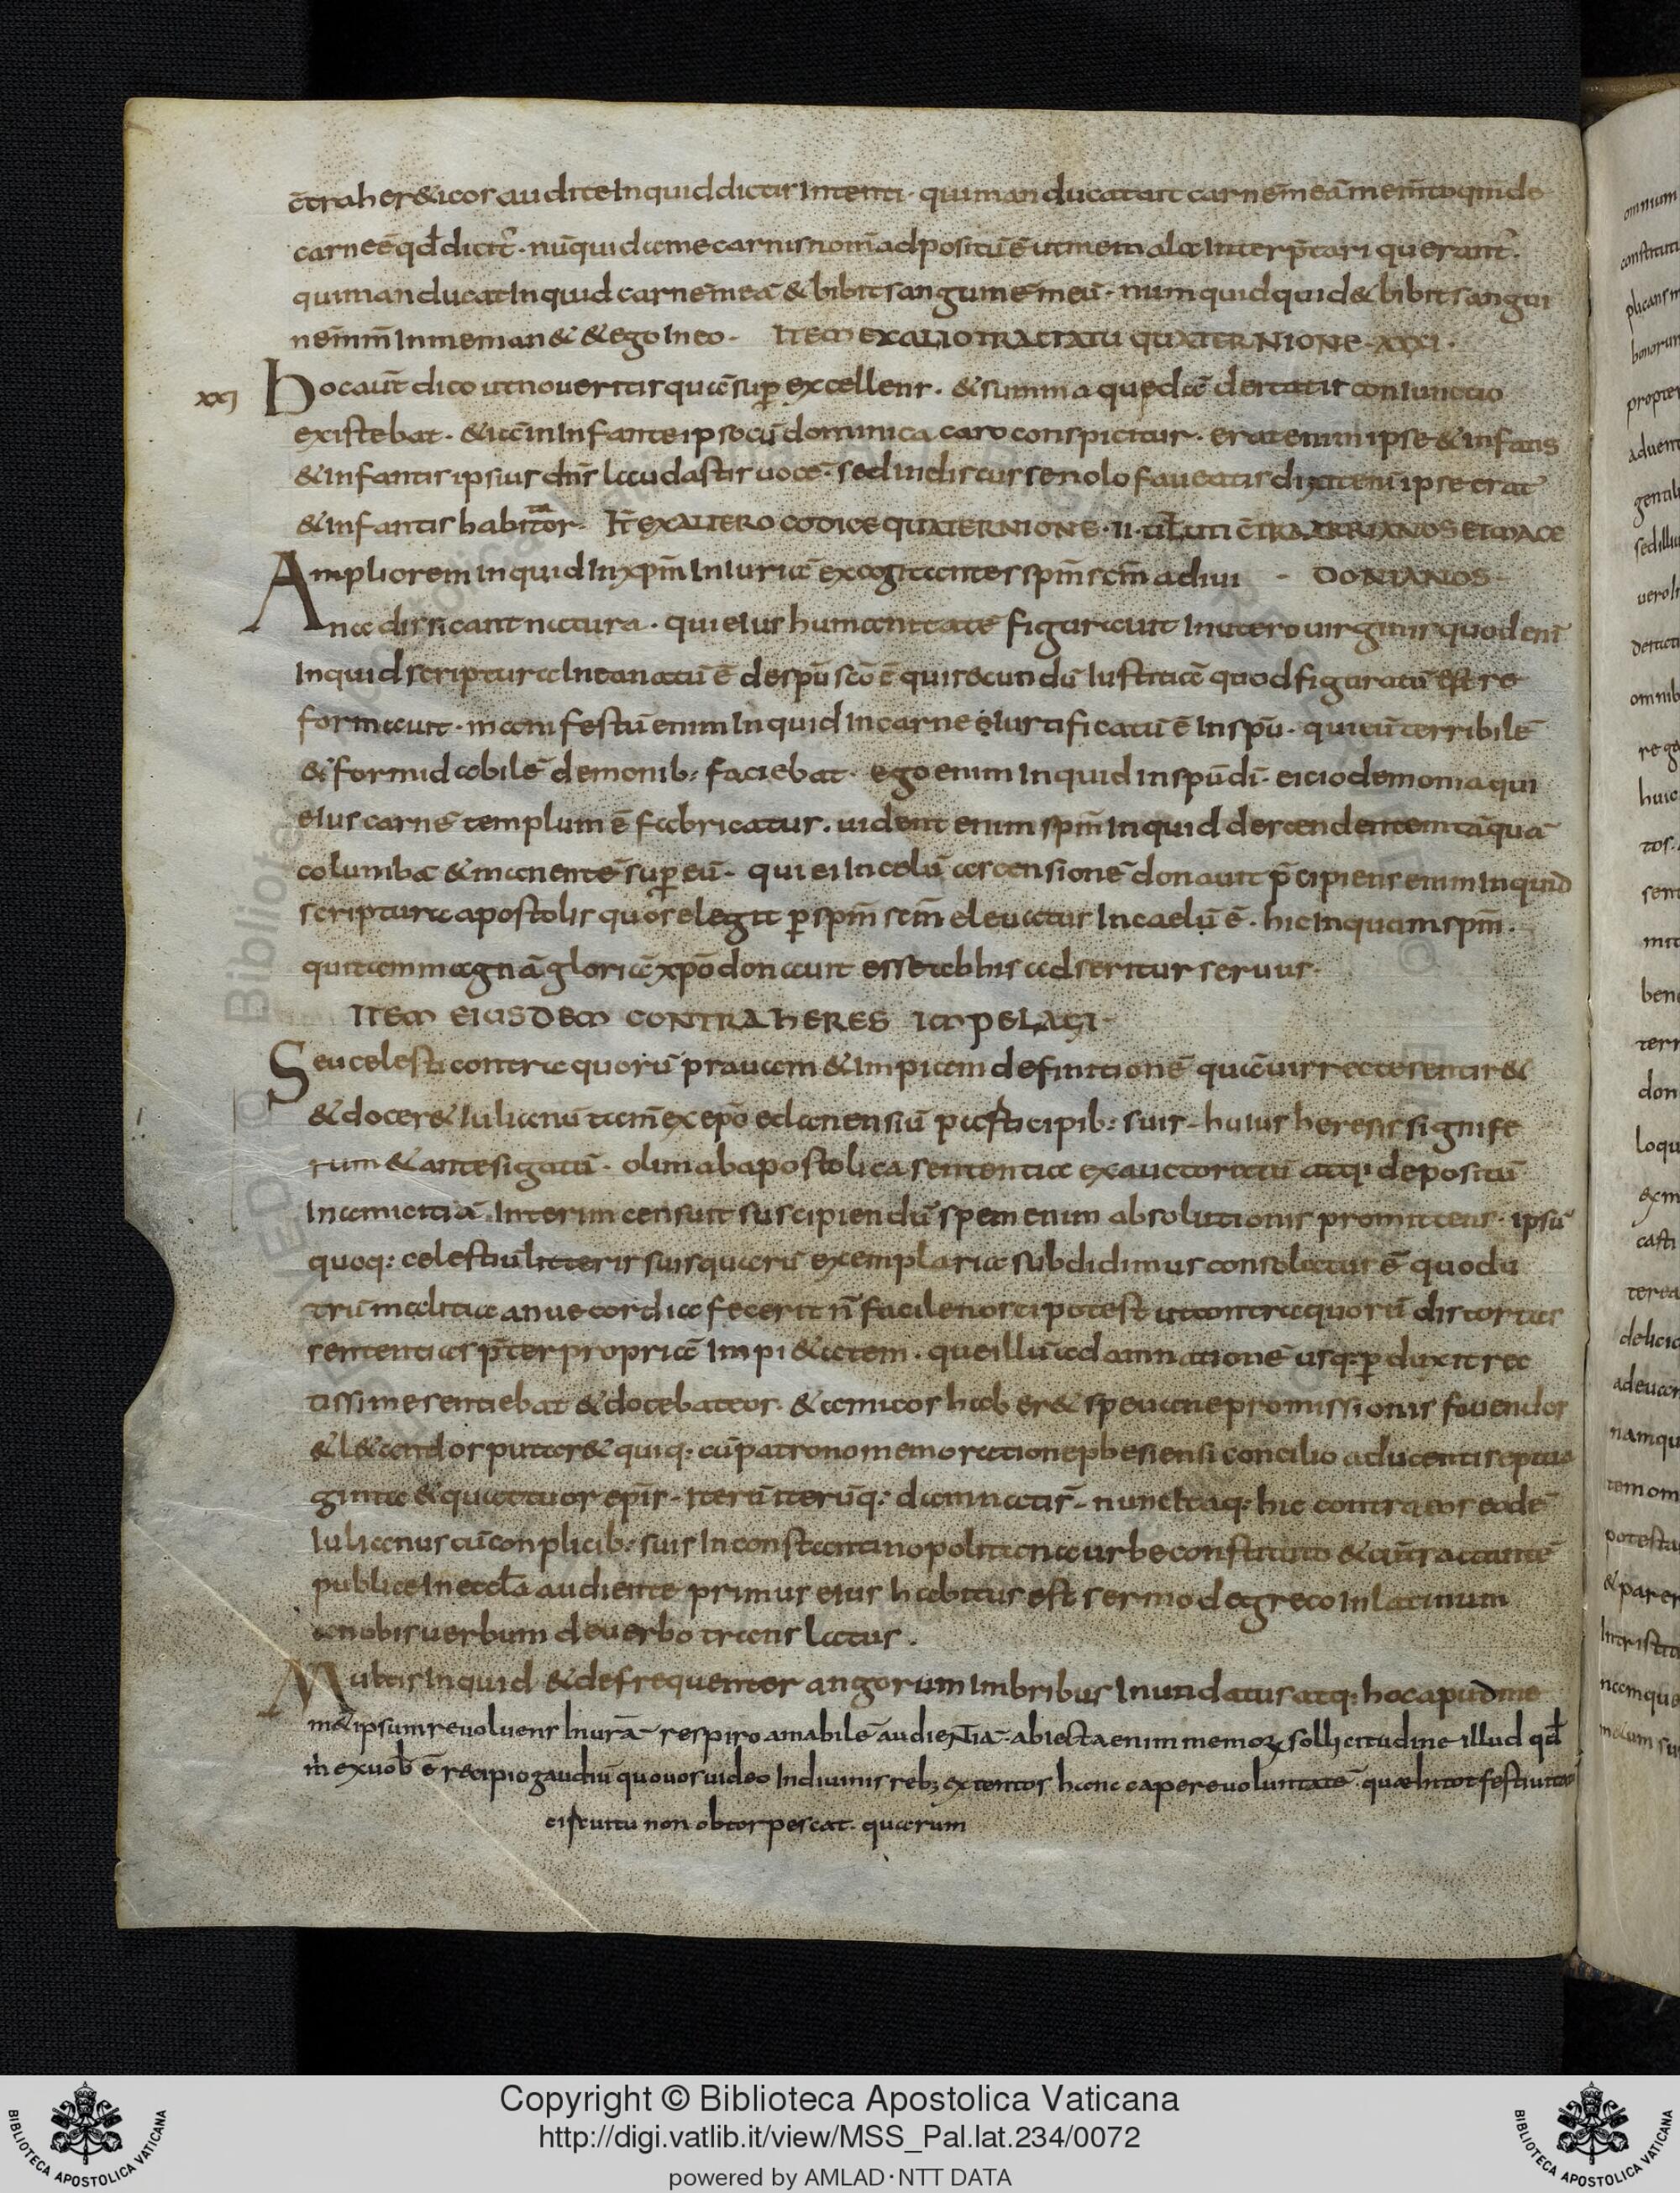 c̄tra her&icos audite Inquid dictis Intenti · qui manducat ait carnē meā mem̄to qm̄ de
carne ē qd̄ dicit᷒ · nūquid a me carnis nom̄ adpositū ē ut me male Interp̄tari querant᷒ ·
qui manducat Inquid carnē meā & bibit sanguinē meū · num quid quid & bibit sangui
nē mm̄ In me man& & ego In eo · ITEM EX ALIO TRACTATU QUATERNIONE · XXXI ·
xxj Hoc aūt dico ut noueritis quā sup̄ excellens · & summa quedā deitatis coniunctio
existebat · & itē in Infante ipso cū dominica caro conspicitur · erat enim ipse & infans
& infantis ipsius dn̄s laudastis uocē · sed indiscusse nolo faueatis dixi enī ipse erat
& infantis habitator · IT̄ EX ALTERO CODICE QUATERNIONE · II · UEL UTI C̄TRA ARRIANOS ET MACE
Ampliorem inquid In xp̄m Iniuriā excogitantes sp̄m sc̄m a diui - DONIANOS
na dissicant natura · qui eius humanitatē figurauit In utero uirginis quod enī
Inquid scriptura In ea natū ē de spū scō ē qui secundū Iustitiā quod figuratū est re
formauit · manifestū enim Inquid In carne & iustificatū ē In spū · qui cū terribilē
& formidabilē demonib; faciebat · ego enim Inquid in spū dī · eicio demonia qui
eius carnē templum ē fabricatus · uident enim sp̄m Inquid descendentem tāquā
columba & manentē sup̄ eū · qui ei In celū ascensionē donauit p̄cipiens enim Inquid
scriptura apostolis quos elegit p̄ sp̄m sc̄m eleuatus In caelū ē · hic Inquam sp̄m ·
qui tam magnā gloriā xp̄o donauit esse ab his adseritur seruus ·
ITEM EIUSDEM CONTRA HERESIM PELAGI ·
Seu celesti contra quorū prauam & impiam definitionē quāuis recte sentir&
& docer& Iulianū tam̄ ex ep̄o eclanensiū participib; suis · huius heresis signife
rum & antesigatū · olim ab apostolica sententia exauctoratū atq; depositū
In amicitiā Interim censuit suscipiendū spem enim absolutionis promittens · ipsū
quoq; celestiū litteris suis quarū exemplaria subdidimus consolatus ē quod u
trū malitia an uecordia fecerit n̄ facile nosci potest ut contra quorū distortas
sententias p̄ter propriā Impi&atem · que illū ad damnationē usq; p̄duxit rec
tissime sentiebat & docebat eos & amicos haber& spe uane promissionis fouendos
& l&andos putar& quiq; cū patrono memorati onephesiensi concilio a ducentis septua
ginta & quattuor ep̄is · iterū iterūq; damnatis · nunc itaq; hic contra eos eodē
Iulianus cū conplicib; suis In constantinopolitana urbe constituto & cū tractante
publice In eccl̄a audiente primus eius habitus est sermo de greco In latinum
a nobis uerbum de uerbo translatus ·
Multis Inquid & de frequenter angorum Imbribus Inundatus atq; hoc apud me
m& ipsum reuoluens In urā respiro amabilē audientiā · abiecta enim memoꝝ sollicitudine illud qd̄
m̄ ex uob̄ ē recipio gaudiū quo uos uideo In diuinis reb; extentos hanc capere uoluntatē · quae In tot festiuita
cis tuitu non obtorpescat · quarum
Copyright © Biblioteca Apostolica Vaticana
http://digi.vatlib.it/view/MSS_Pal.lat.234/0072
powered by AMLAD·NTT DATA
BIBLIOTECA APOSTOLICA VATICANA
BIBLIOTECA APOSTOLICA VATICANA